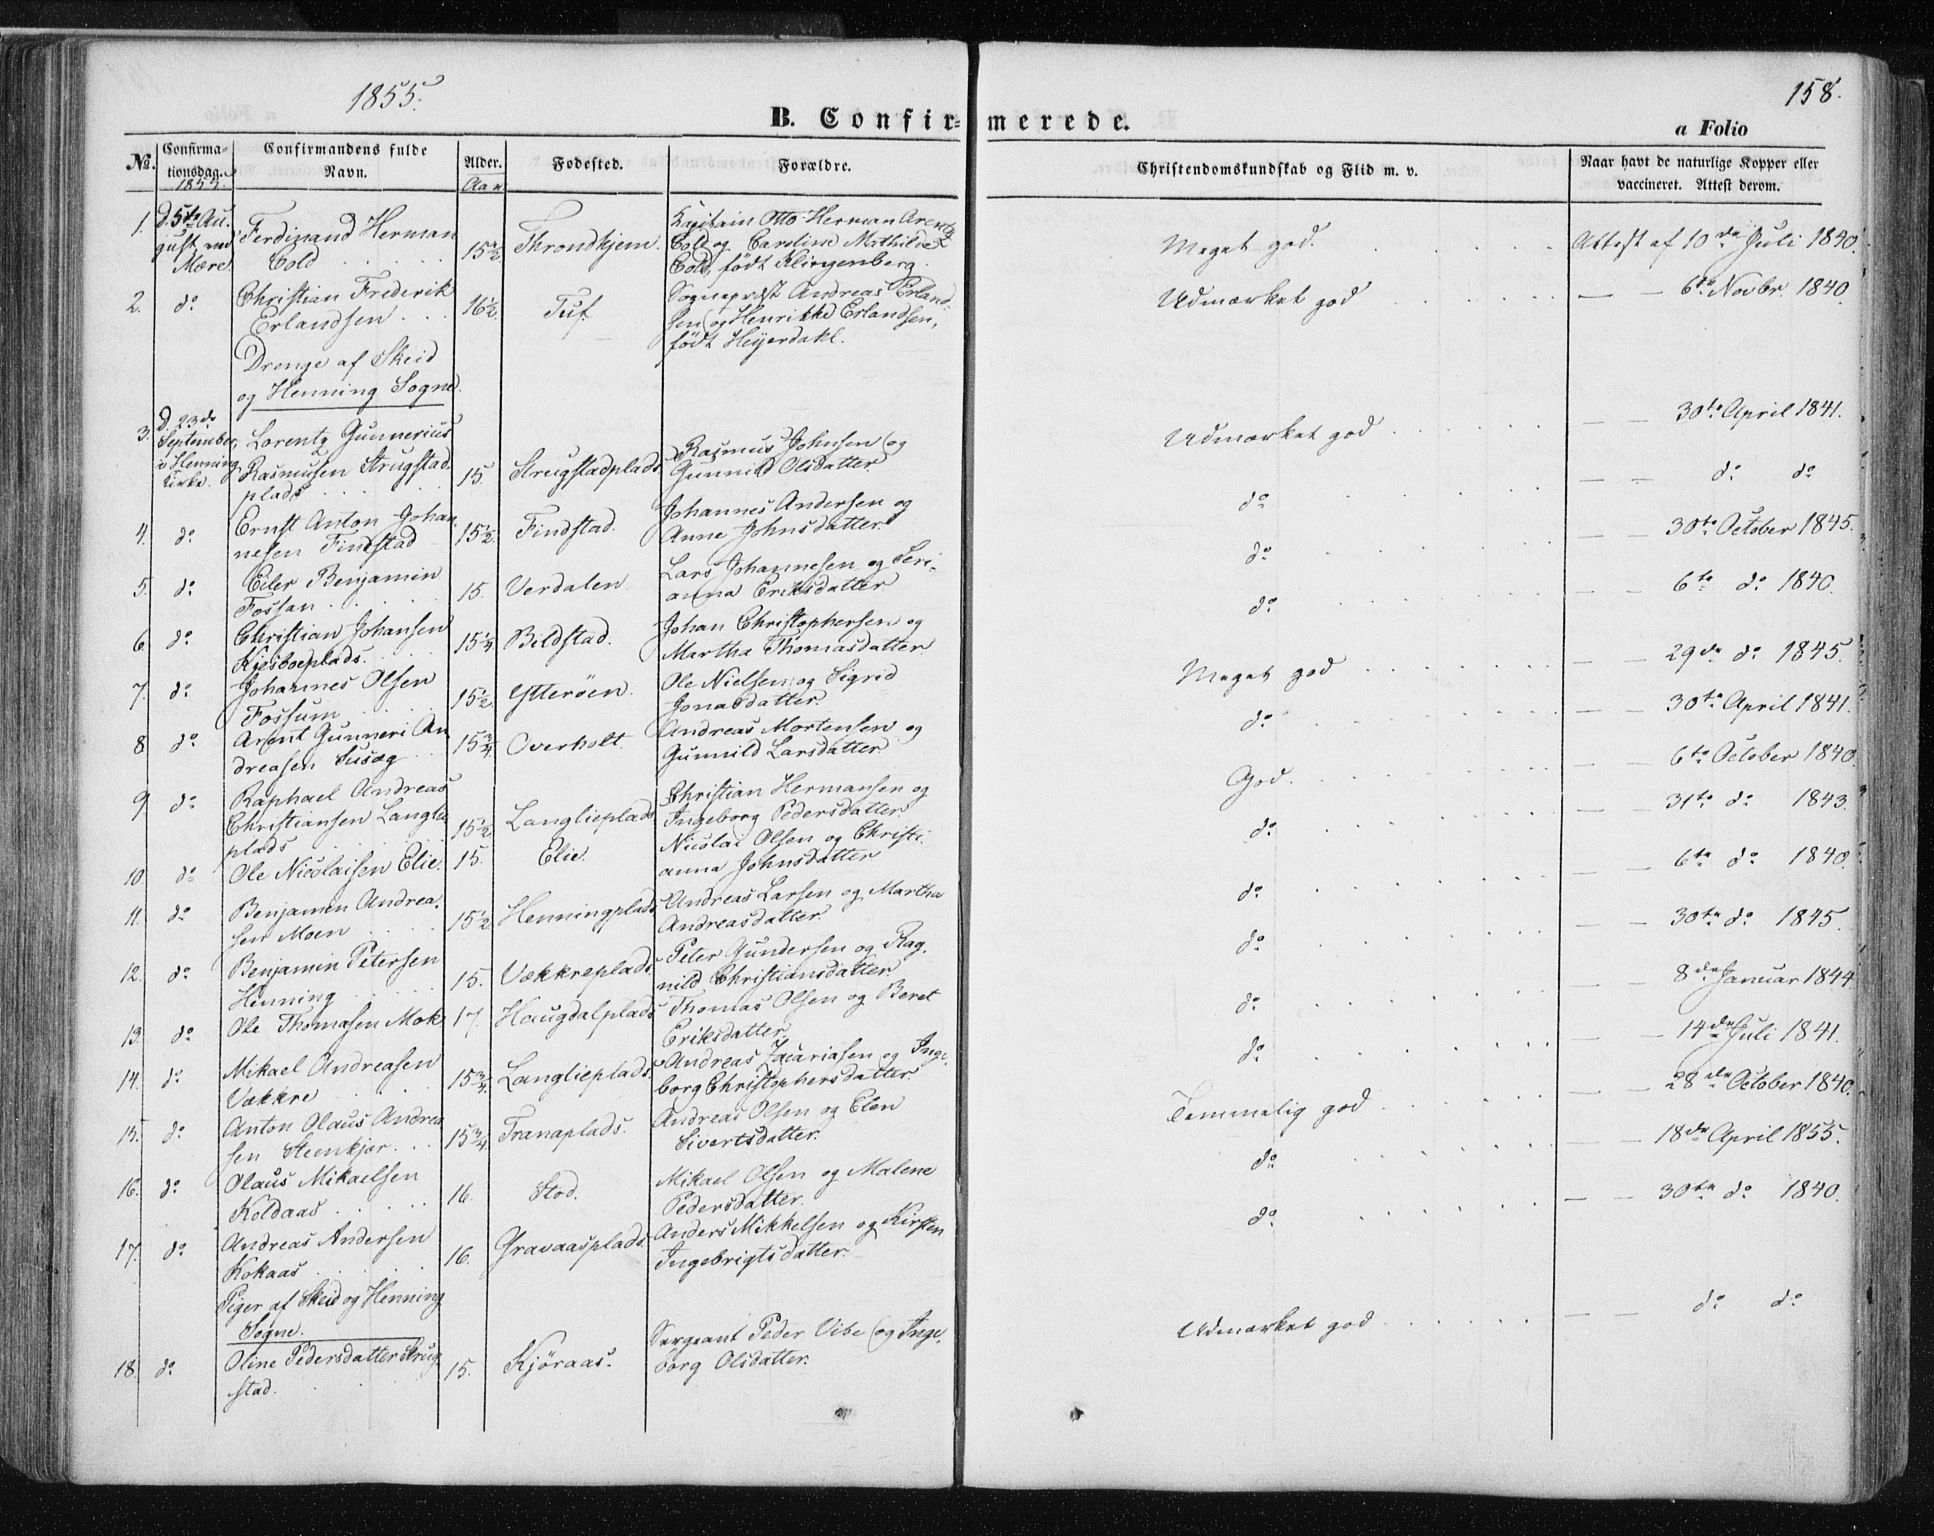 1855.
158.
B. Confirmerede.
a Folio
No.
Confirma-
tionsdag.
1855.
Confirmandens fulde
Navn.
Alder.
Aar
Fødested.
Forældre.
Christendomskundskab og Flid m. v.
Naar havt de naturlige Kopper eller
vaccineret. Attest derom.
1. D. 5te Au- Ferdinand Herman 15½ Throndhjem. Kapitain Otto Herman Arentz Meget god. Attest af 10de Juli 1840.
gust ved Cold Cold og Caroline Mathilde
Mære. Cold, født Klingenberg.
2. do Christian Frederik 16½ Tuf. Sognepræst Andreas Erland- Udmærket god — — 6te Novbr. 1840.
Erlandsen sen og Henrikke Erlandsen,
født Heyerdahl.
Drenge af Skeid
og Henning Sogne.
3. D. 23de Lorentz Gunnerius Rasmus Johnsen og Udmærket god — — 30te April 1841.
September Rasmusen Strugstad 15. Strugstadplads Gunnild Olsdatter
i Henning plads
Kirke.
4. do Ernst Anton Johan- 15½ Findstad. Johannes Andersen og do — — do do
nesen Findstad Anne Johnsdatter
5. do Eiler Benjamin 15. Verdalen Lars Johannesen og Seri- do — — 30te October 1845.
Fossan anna Eriksdatter
6. do Christian Johansen 15¼ Bildstad. Johan Christophersen og do — — 6te do 1840.
plads. Martha Thomasdatter
7. do Johannes Olsen 15½ Ytterøen. Ole Nielsen og Sigrid Meget god — — 29de do 1845.
Fossum Jonasdatter
8 do Arent Gunneri An 15¾ Overholt. Andreas Mortensen og do — — 30te April 1841.
dreasen Susæg Gunnild Larsdatter
9. do Raphael Andreas 15½ Langlieplads Christian Hermansen og God. — — 6te October 1840.
Christiansen Langlie Ingeborg Pedersdatter
plads
10. do Ole Nicolaisen Elie 15. Elie. Nicolai Olsen og Christi- do — — 31te do 1843.
anna Johnsdatter
11. do Benjamin Andrea- 15½ Henningplads Andreas Larsen og Martha do — — 6te do 1840.
sen Moen Andreasdatter
12. do Benjamin Petersen 15. Vækkreplads. Peter Gundersen og Rag- do — — 30te do 1845.
Henning nild Christiansdatter
13. do Ole Thomasen Mok 17. Haugdalplads Thomas Olsen og Beret do — — 8de Januar 1844
Eriksdatter
14. do Mikael Andreasen 15¾ Langlieplads. Andreas Zacariasen og Inge- do — — 14de Juli 1841.
Vækkre borg Christophersdatter.
15. do Anton Olaus Andrea 15¾ Tranaplads. Andreas Olsen og Elen Temmelig god — — 28de October 1840.
sen Steenkjær. Sivertsdatter.
16. do Olaus Mikaelsen 16. Stod. Mikael Olsen og Malene do — — 18de April 1855.
Koldaas Pedersdatter.
17. do Andreas Andersen 16. Gravaasplads. Anders Mikkelsen og Kirsten do — — 30te do 1840.
Kokaas Ingebrigtsdatter.
Piger af Skeid og Henning
Sogne.
18. do Oline Pedersdatter Strug- 15. Kjøraas. Sergeant Peder Vibe og Inge- Udmærket god — — do do
stad. borg Olsdatter.